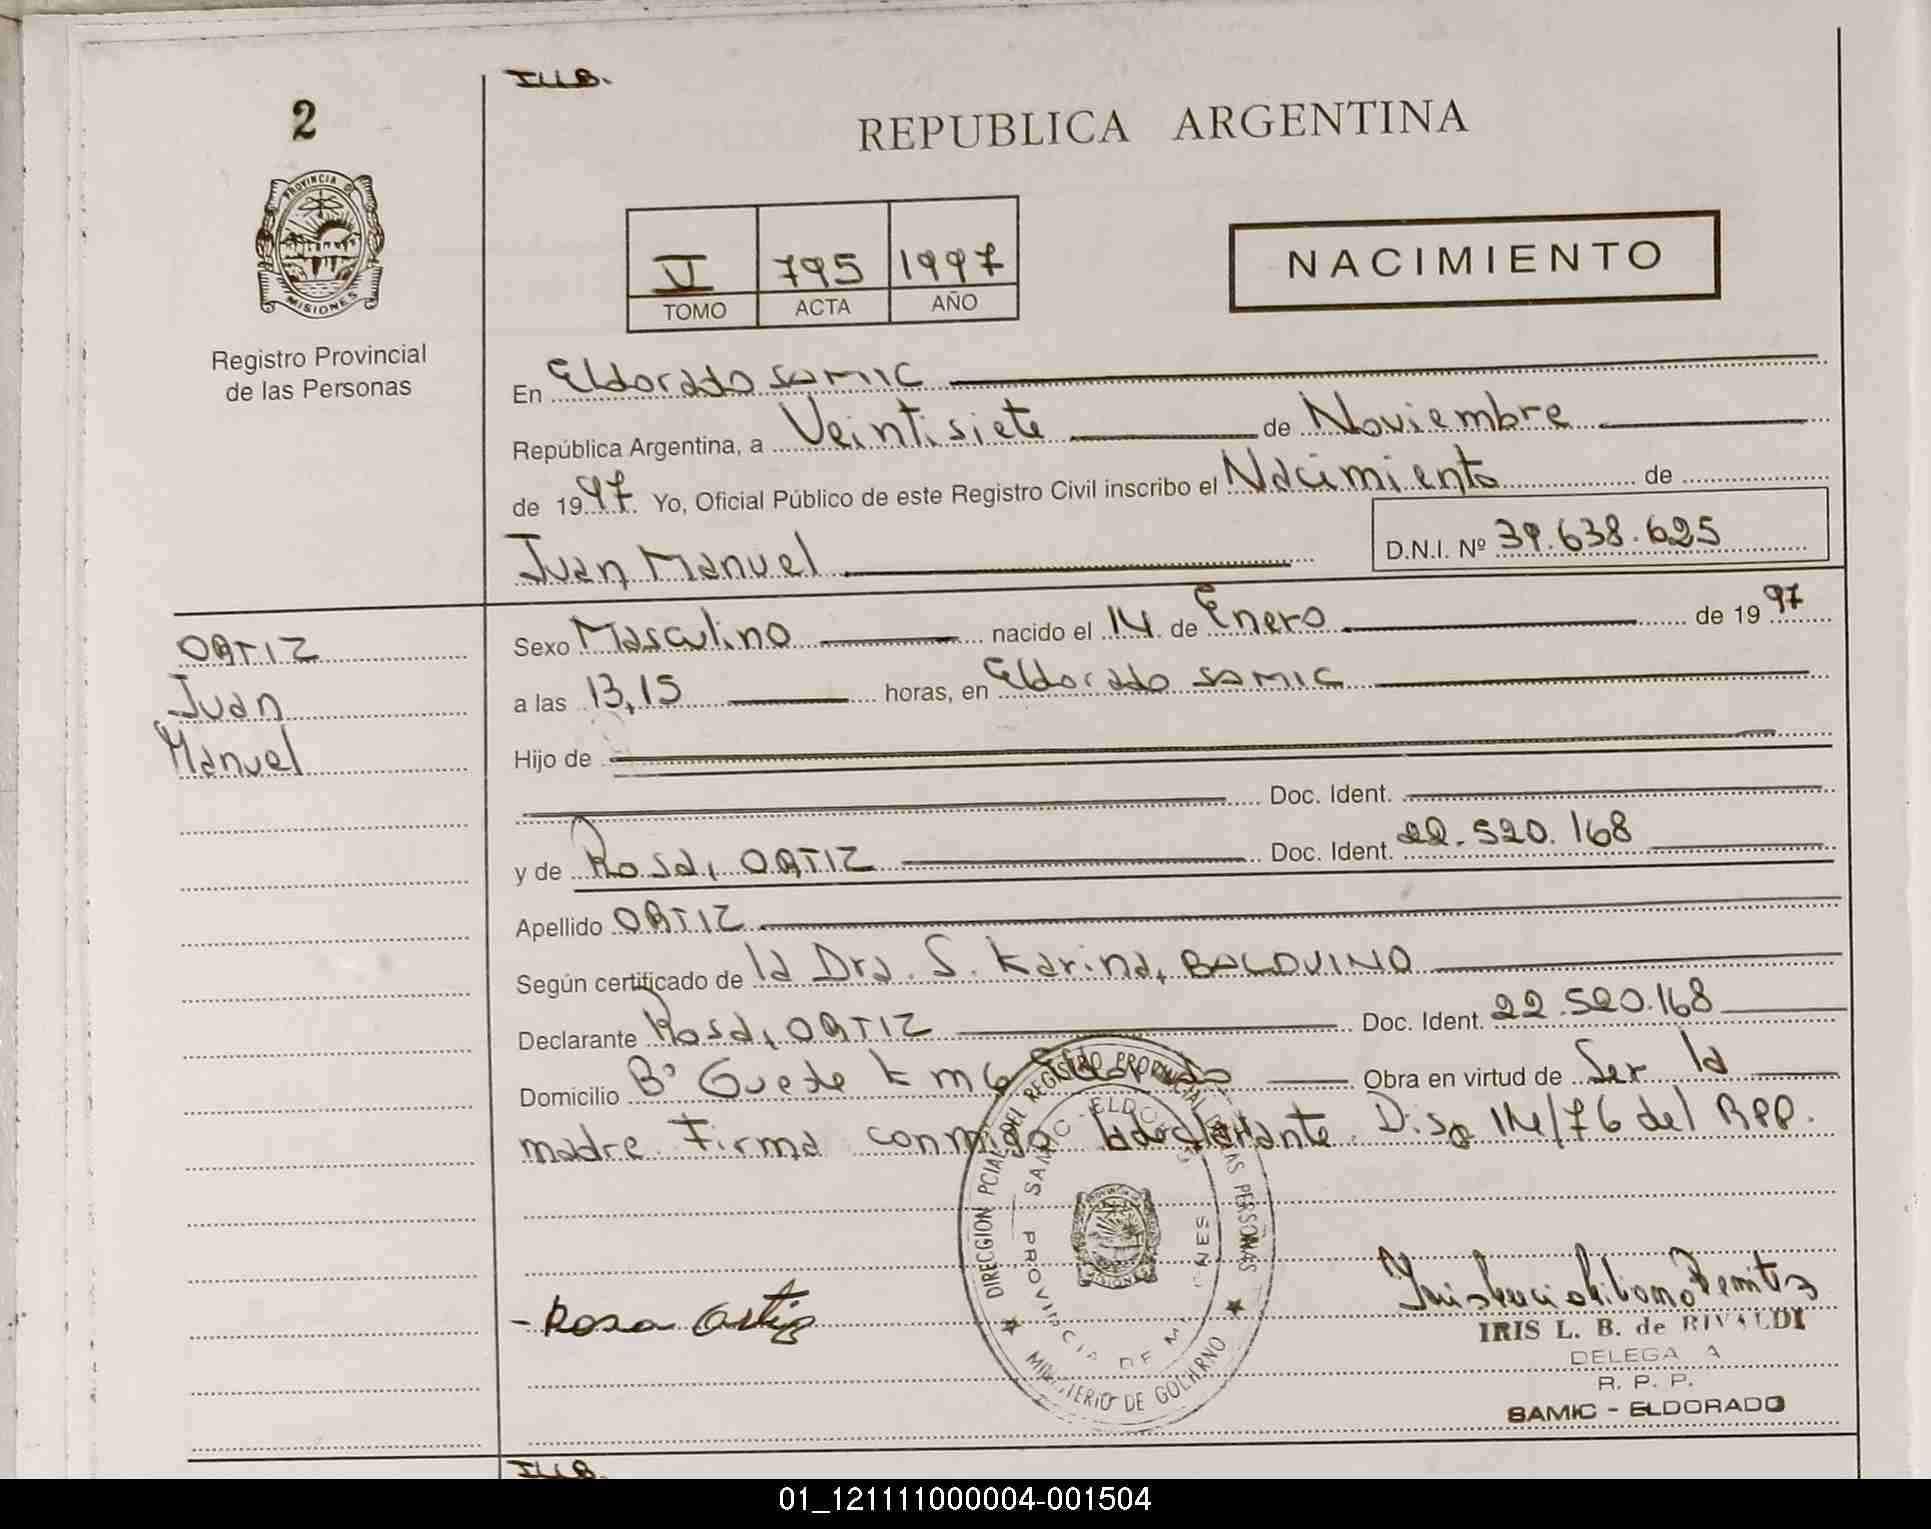 I.L.B.
2
REPUBLICA ARGENTINA
PROVINCIA D
MISIONES
V 795 1997
TOMO ACTA AÑO
NACIMIENTO
Registro Provincial
de las Personas
En Eldorado SAMIC
República Argentina, a Veintisiete de Noviembre
de 1997 Yo, Oficial Público de este Registro Civil inscribo el Nacimiento de
Juan Manuel D.N.I. Nº 39.638.625
ORTIZ
Juan
Manuel
Sexo Masculino nacido el 14 de Enero de 1997
a las 13,15 horas, en Eldorado SAMIC
Hijo de
Doc. Ident.
y de Rosa, ORTIZ Doc. Ident. 22.520.168
Apellido ORTIZ
Según certificado de la Dra. S. Karina, BALDUINO
Declarante Rosa, ORTIZ Doc. Ident. 22.520.168
Domicilio Bº Guede Km 6 Eldorado Obra en virtud de Ser la
madre. Firma conmigo la declarante. Disp 14/76 del RPP.
DIRECCION PCIAL DEL REGISTRO PROVINCIAL DE LAS PERSONAS
SAMIC - ELDORADO
PROVINCIA DE MISIONES
MINISTERIO DE GOBIERNO
MISIONES
- Rosa Ortiz
IRIS L. B. de RIVALDI
DELEGADA
R. P. P.
SAMIC - ELDORADO
I.L.B.
01_121111000004-001504